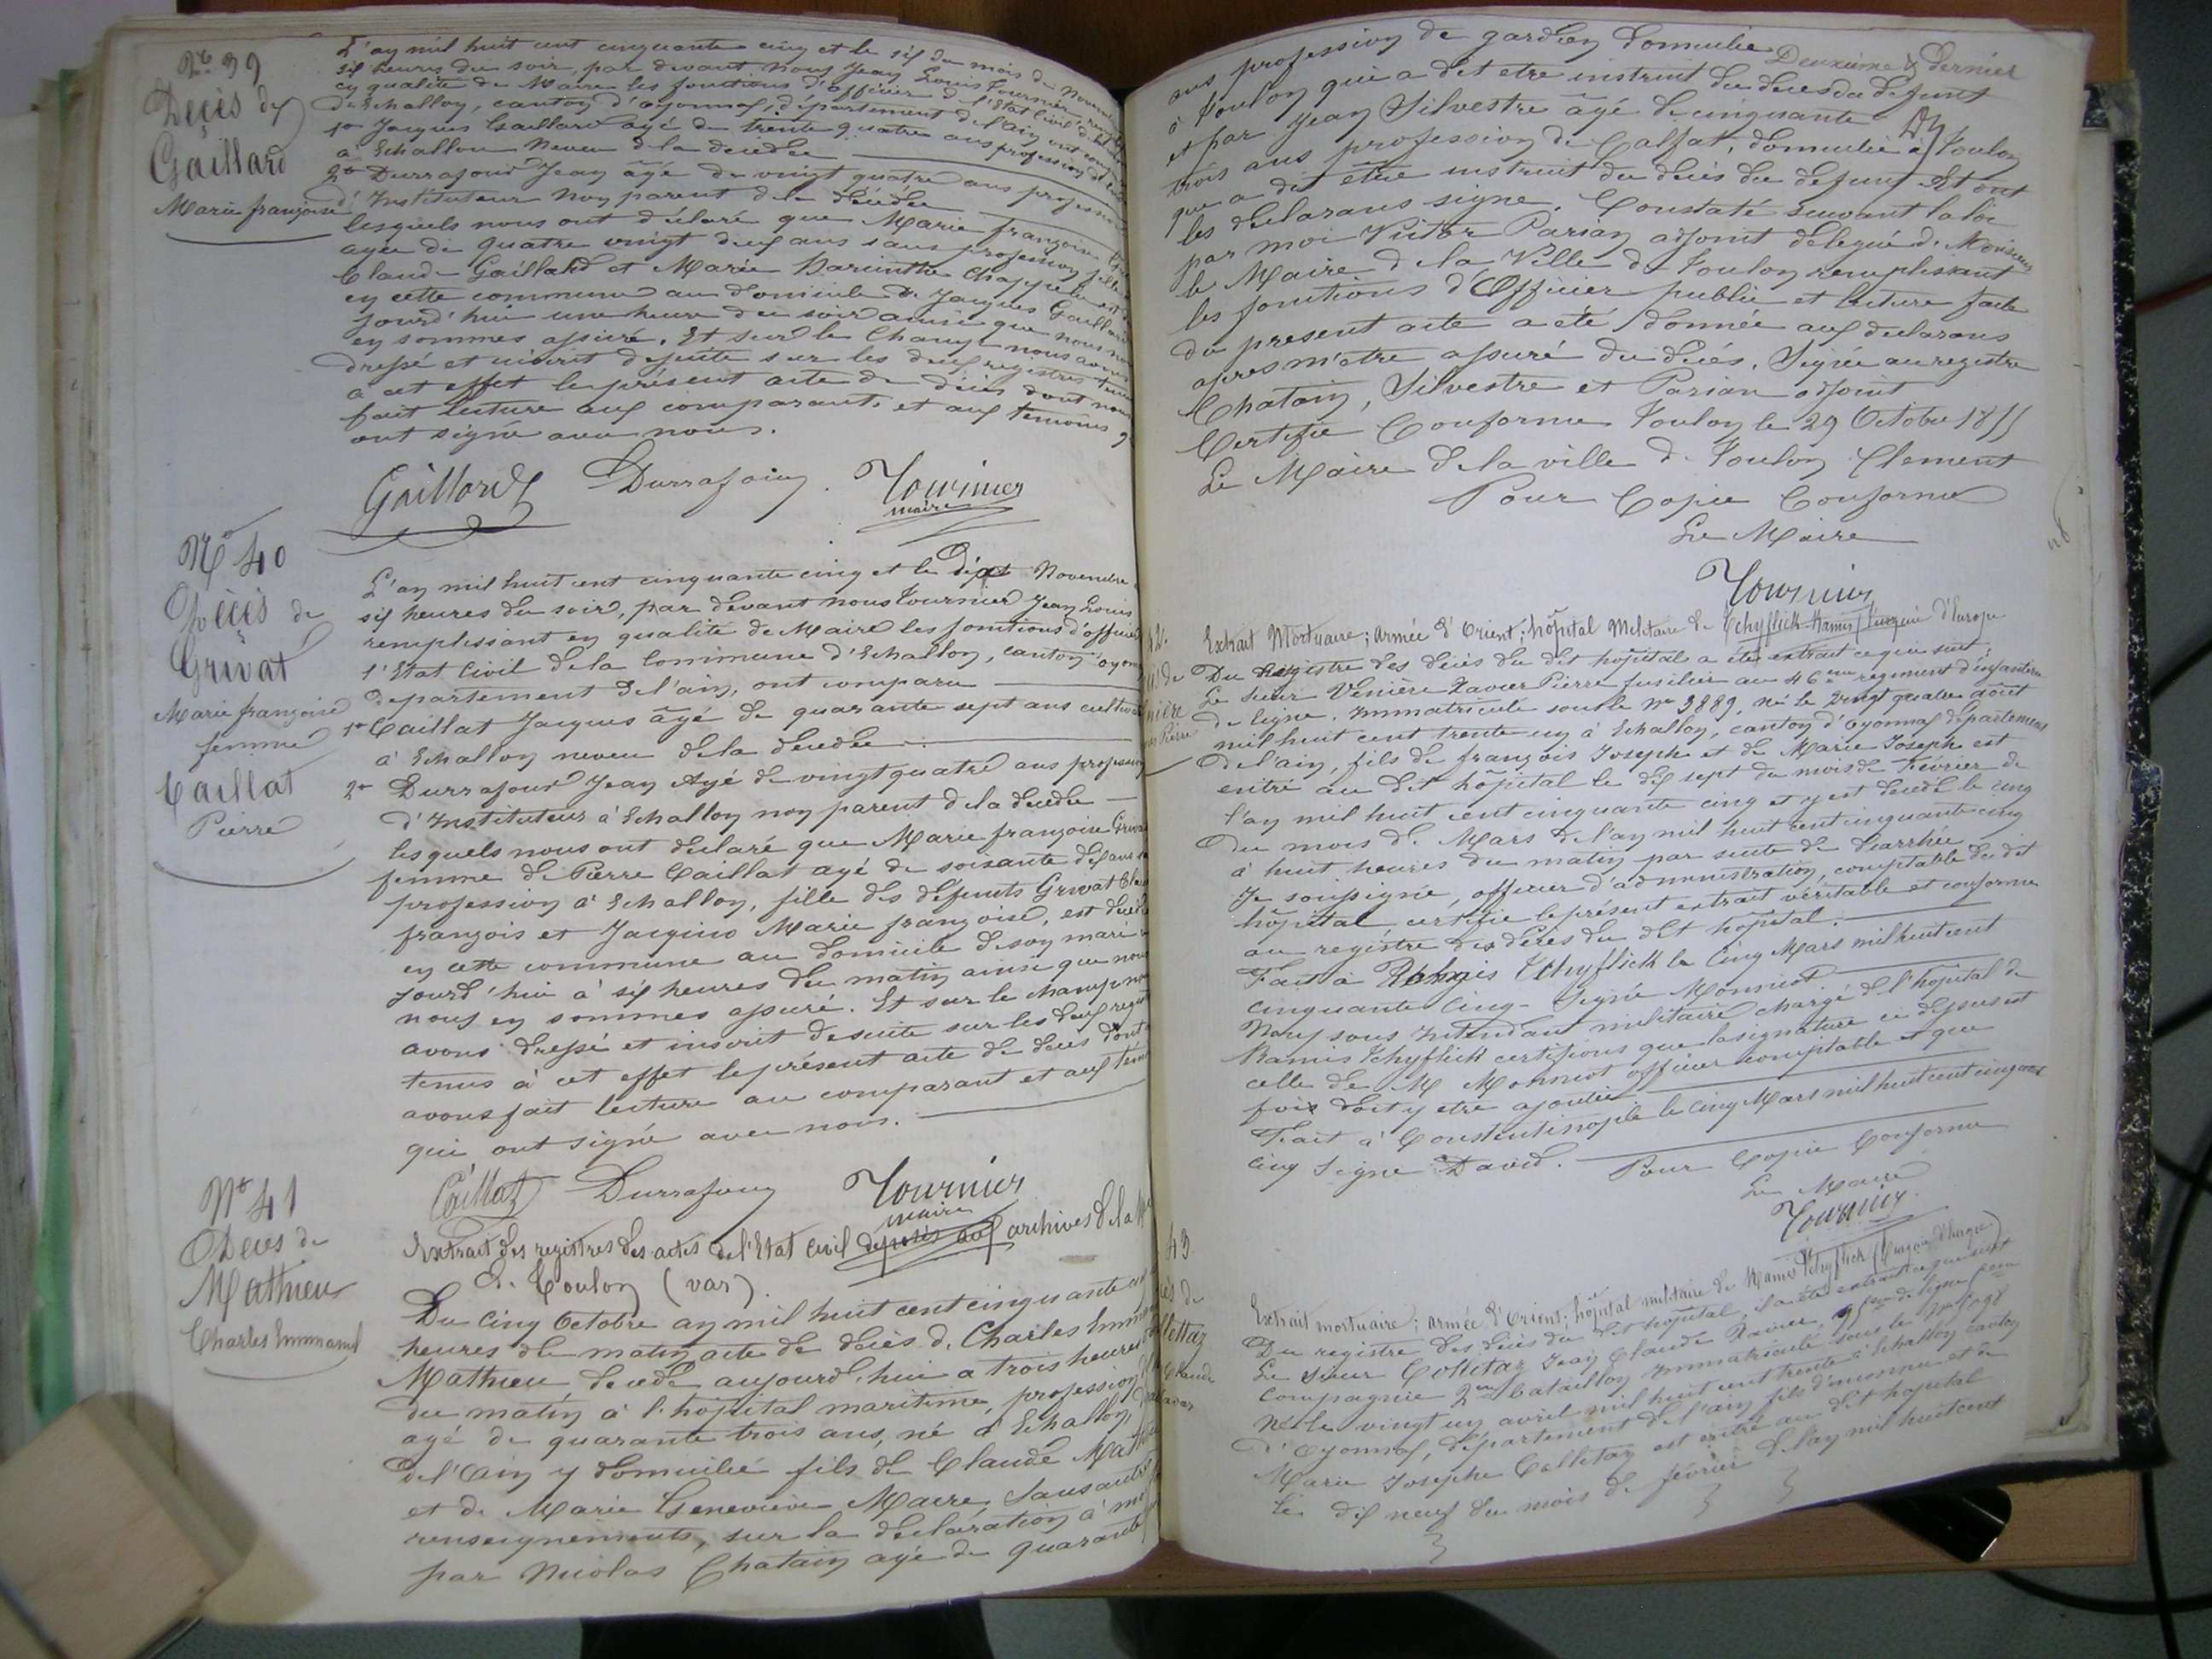 No 39
Décès de
Gaillard
Marie françoise
L'an mil huit cent cinquante cinq et le six du mois de Novembre
six heures du soir, par devant nous Jean Louis Tournier,
en qualité de Maire les fonctions d'officier de l'Etat Civil de
d'Echallon, canton d'oyonnax, département de l'ain ont
1o Jacques Gaillard agé de trente quatre ans profession
à Echallon neveu de la décédée
2o Durrafour Jean âgé de vingt quatre ans profession
d'Instituteur non parent de la décédée
lesquels nous ont déclaré que Marie françoise
agée de quatre vingt deux ans sans profession fille
Claude Gaillard et Marie
en cette commune au domicile de Jacques Gaillard
jourd'hui une heure du soir ainsi que nous
en sommes assuré. Et sur le Champ nous avons
dressé et inscrit desuite sur les deux registres tenus
à cet effet le présent acte de décès dont nous
fait lecture aux comparants et aux temoins
ont signé avec nous.
Gaillard Durrafour Tournier
maire
No 40
Décès de
Grivat
Marie françoise
femme
Caillat
Pierre
L'an mil huit cent cinquante cinq et le Novembre
six heures du soir, par devant nous Tournier Jean Louis
remplissant en qualité de Maire les fonctions d'officier
l'Etat Civil de la Commune d'Echallon, canton
département de l'ain, ont comparu
1o Caillat Jacques âgé de quarante sept ans
à Echallon neveu de la décédée
2o Durrafour Jean Agé de vingt quatre ans profession
d'Instituteur à Echallon non parent de la décédée
lesquels nous ont déclaré que Marie françoise
femme de Pierre Caillat agé de soixante dix ans
profession à Echallon, fille des défunts Grivat
françois et Marie françoise, est
en cette commune au domicile de son mari
jourd'hui à six heures du matin ainsi que nous
nous en sommes assuré. Et sur le champ
avons dressé et inscrit desuite sur les deux
tenus à cet effet le présent acte de décès dont
avons fait lecture au comparant et aux
qui ont signé avec nous.
Caillat Durrafour Tournier
maire
No 41
Décès de
Mathieu
Charles Emmanuel
Extrait des registres des actes de l'Etat Civil déposés aux archives de la
de Toulon (var).
Du Cinq Octobre an mil huit cent cinquante
heures de matin acte de décès de Charles
Mathieu décédé aujourd'hui a trois heures
du matin à l'hôpital maritime, profession
agé de quarante trois ans, né à Echallon,
de l'Ain y domicilié fils de Claude
et de Marie Geneviève Maire, Sans autres
renseignements, sur la déclaration à
par Nicolas Chatain agé de quarante
ans profession de gardien domicilié Deuxième & Dernier
à Toulon qui a dit etre instruit du décès du défunt
et par Jean Silvestre âgé de cinquante
trois ans profession de Calfat, domicilié à Toulon
que a dit être instruit du décès du défunt Et ont
les déclarans signé. Constaté suivant la loi
par moi Victor Parian adjoint délégué de Monsieur
le Maire de la Ville de Toulon remplissant
les fonctions d'Officier public et lecture faite
du présent acte a été donnée aux déclarans
apres m'être assuré du décès. Signée au registre
Chatain, Silvestre et Parian adjoint
Certifié Conforme Toulon le 29 Octobre 1855
Le Maire de la ville de Toulon Clement
Pour Copie Conforme
Le Maire
Tournier
Extrait Mortuaire; Armée d'Orient; hôpital Militaire de
Du Registre des décès du dit hôpital a été extrait ce qui suit:
Le Sieur Venière Xavier Pierre fusilier au 46eme régiment d'infanterie
de ligne. Immatriculé sous le No 3889, né le vingt quatre août
mil huit cent trente un à Echallon, canton d'oyonnax département
de l'ain, fils de françois Joseph et de Marie Joseph est
entré au dit hôpital le dix sept du mois de Février de
l'an mil huit cent cinquante cinq et y est décédé le cinq
du mois de Mars de l'an mil huit cent cinquante cinq
à huit heures du matin par suite de diarrhée
Je soussigné, officier d'administration, comptable du dit
hôpital, certifie le présent extrait véritable et conforme
au registre des décès du dit hôpital.
Fait à Ramis Tchyflick le Cinq Mars mil huit cent
cinquante Cinq - Signé Monniot
Nous sous Intendant militaire chargé de l'hopital de
Ramis Tchyflick certifions que la signature ci dessus est
celle de M Monniot officier comptable et que
fois doit y etre ajoutée
Fait à Constantinople le Cinq Mars mil huit cent cinquante
cinq Signé David. Pour Copie Conforme
Le Maire
Tournier
43
Extrait mortuaire; Armée d'Orient; hôpital militaire de Ramis Tchyflick
Du registre des décès du dit hopital, il a été extrait ce qui suit
Le Sieur Colletaz Jean Claude
compagnie 2me bataillon Immatriculé sous le No
Né le vingt un avril mil huit cent trente à Echallon canton
d'Oyonnax, département de l'ain fils d'inconnu et de
Marie Josephe Colletaz est entré au dit hopital
le dix neuf du mois de février de l'an mil huit cent